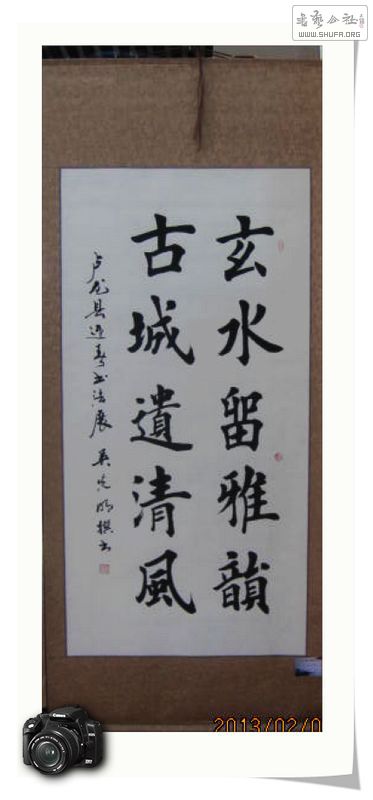 玄水留雅韻
古城遺清風
卢龙县迎春书法展 吴先明撰书
书艺公社
WWW.SHUFA.ORG
2013/02/0
Canon